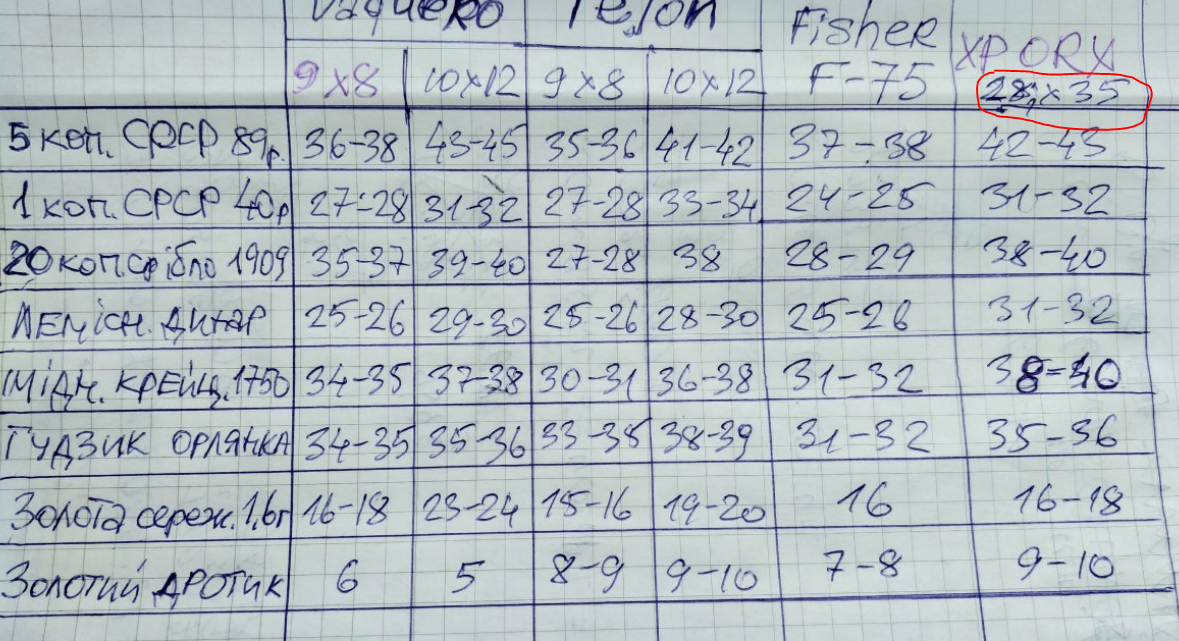 Vaquero Tejon Fisher XP ORX
9x8 10x12 9x8 10x12 F-75 28x35
5 коп. СРСР 89р. 36-38 43-45 35-36 41-42 37-38 42-43
1 коп. СРСР 40р 27-28 31-32 27-28 33-34 24-25 31-32
20 коп срібло 1909 35-37 39-40 27-28 38 28-29 38-40
ЛЕГІСН. ДИНАР 25-26 29-30 25-26 28-30 25-26 31-32
МІДН. КРЕЙЦ. 1750 34-35 37-38 30-31 36-38 31-32 38-40
ГУДЗИК ОРЛЯНКА 34-35 35-36 33-35 38-39 31-32 35-36
Золота сереж. 1,6г 16-18 23-24 15-16 19-20 16 16-18
Золотий дротик 6 5 8-9 9-10 7-8 9-10